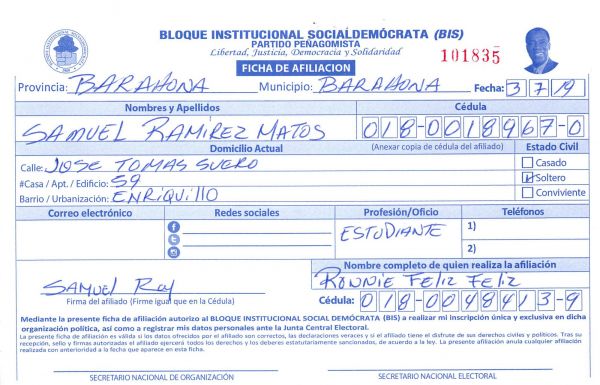 BLOQUE INSTITUCIONAL SOCIALDEMÓCRATA (BIS)
PARTIDO PEÑAGOMISTA
Libertad, Justicia, Democracia y Solidaridad
101835
FICHA DE AFILIACION
Provincia: BARAHONA Municipio: BARAHONA Fecha: 3/7/19
Nombres y Apellidos Cédula
SAMUEL RAMIREZ MATOS 018-0018967-0
Domicilio Actual (Anexar copia de cédula del afiliado) Estado Civil
Calle: JOSE TOMAS SUERO Casado
#Casa / Apt. / Edificio: 59 Soltero
Barrio / Urbanización: ENRIQUILLO Conviviente
Correo electrónico Redes sociales Profesión/Oficio Teléfonos
ESTUDIANTE 1)
2)
Nombre completo de quien realiza la afiliación
SAMUEL RONNIE FELIZ FELIZ
Firma del afiliado (Firme igual que en la Cédula) Cédula: 018-0048413-9
Mediante la presente ficha de afiliación autorizo al BLOQUE INSTITUCIONAL SOCIAL DEMÓCRATA (BIS) a realizar mi inscripción única y exclusiva en dicha
organización política, así como a registrar mis datos personales ante la Junta Central Electoral.
La presente ficha de afiliación es válida si los datos ofrecidos por el afiliado son correctos, las declaraciones veraces y si el afiliado tiene el disfrute de sus derechos civiles y políticos. Tras su
recepción, sello y firmas autorizadas el afiliado ejercerá todos los derechos y los deberes estatutariamente sancionados, de acuerdo a la ley. La presente afiliación anula cualquier afiliación
realizada con anterioridad a la fecha que aparece en esta ficha.
SECRETARIO NACIONAL DE ORGANIZACIÓN SECRETARIO NACIONAL ELECTORAL